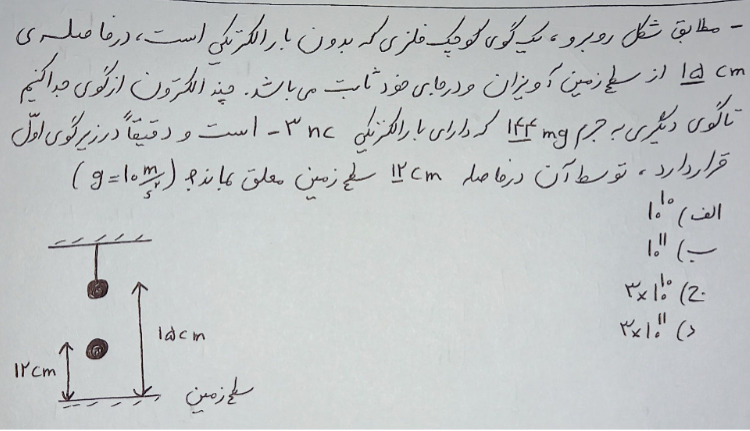 - مطابق شکل روبرو، یک گوی کوچک فلزی که بدون بار الکتریکی است، در فاصله‌ی
۱۵ cm از سطح زمین آویزان و در جای خود ثابت می باشد. چند الکترون از گوی جدا کنیم
تا گوی دیگری به جرم ۱۴۴ mg که دارای بار الکتریکی ۳ nc - است و دقیقاً در زیر گوی اوّل
قرار دارد، توسط آن در فاصله ۱۲ cm سطح زمین معلق بماند؟ (g = ۱۰ m/s²)
الف) ۱۰^۱۰
ب) ۱۰^۱۱
ج) ۳×۱۰^۱۰
د) ۳×۱۰^۱۱
۱۵ cm
۱۲ cm
سطح زمین